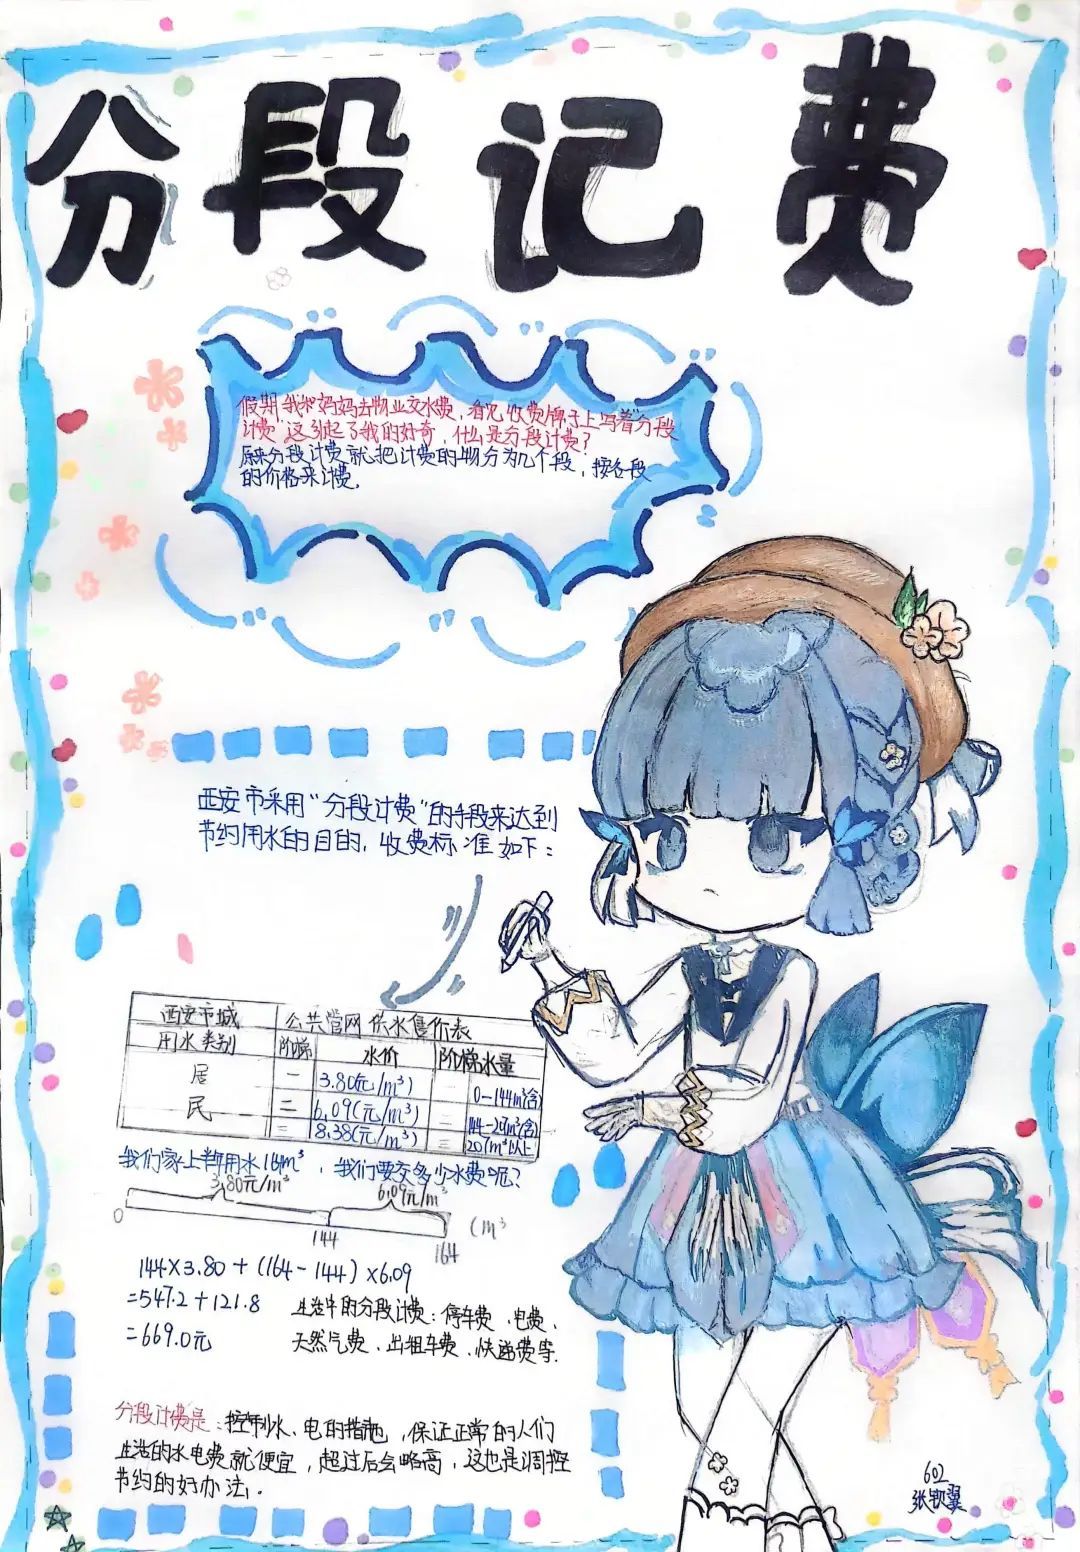 分段记费
假期我和妈妈去物业交水费,看见收费牌子上写着"分段
计费"这引起了我的好奇,什么是分段计费?
原来分段计费就把计费的地分为几个段,按各段
的价格来计费.
西安市采用"分段计费"的手段来达到
节约用水的目的,收费标准如下:
西安市城 公共管网供水售价表
用水类别 阶梯 水价 阶梯水量
居民 一 3.80(元/m³) 一 0-144m³(含)
二 6.09(元/m³) 二
三 8.38(元/m³) 三 207m³以上
我们家上半用水164m³,我们要交多少水费呢?
3.80元/m³ 6.09元/m³
0 144 164 (m³
144×3.80+(164-144)×6.09
=547.2+121.8
=669.0元
生活中的分段计费:停车费、电费、
天然气费、出租车费、快递费等.
分段计费是:控制水、电的措施,保证正常的人们
生活的水电费就便宜,超过后会略高,这也是调控
节约的好办法.
602
张翼